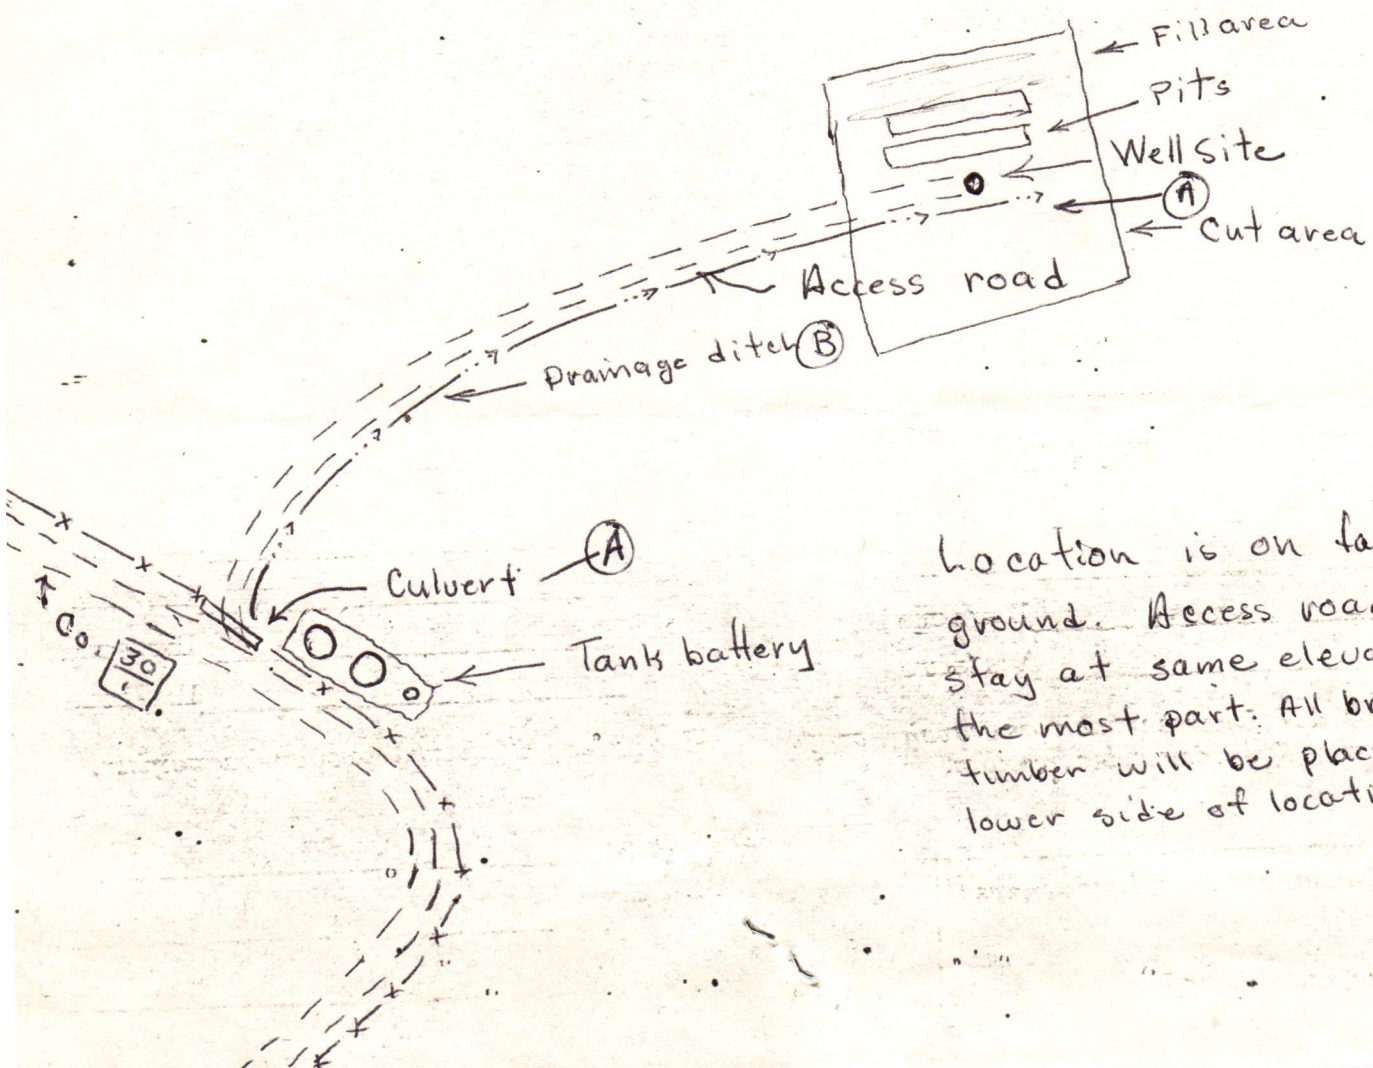 Fill area
Pits
Well Site
A
Cut area
Access road
Drainage ditch B
Culvert A
Tank battery
Co. 30
Location is on
ground. Access
stay at same
the most part. All
timber will be
lower side of